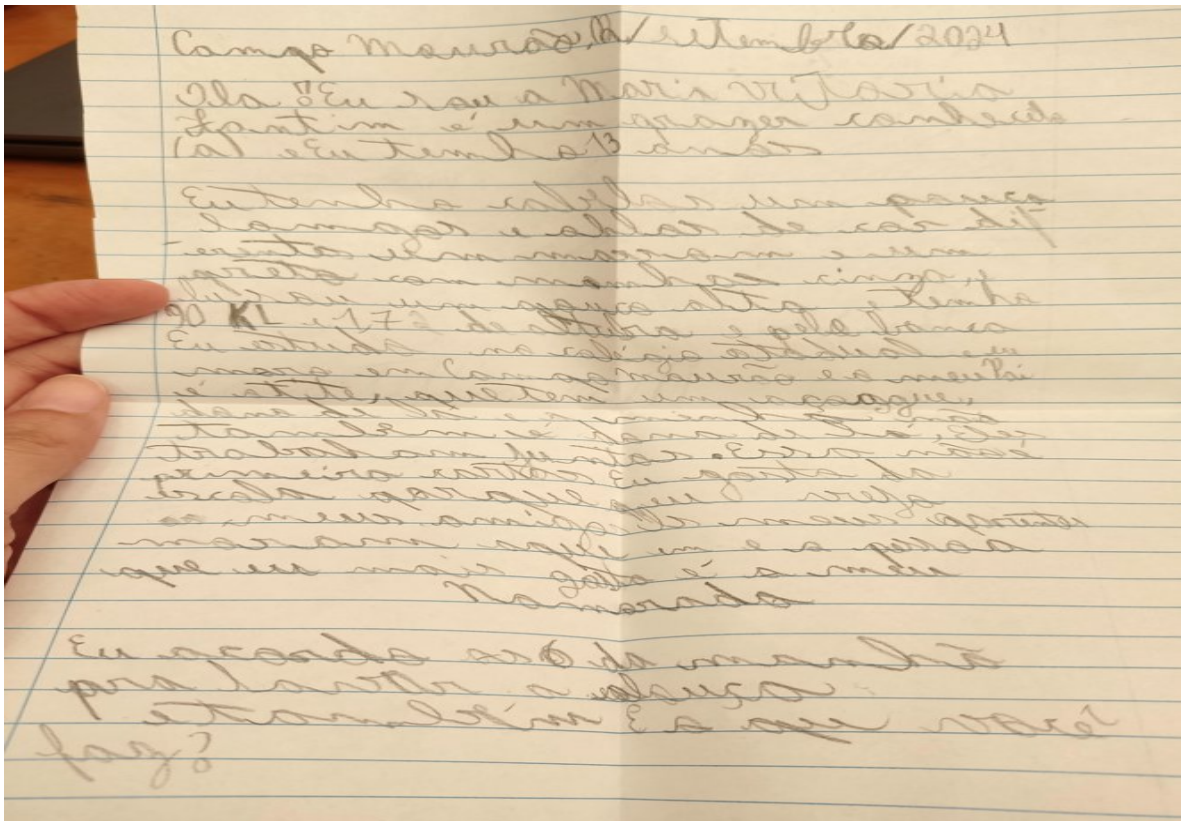 Campo Mourão, 12/setembro/2024
Ola! Eu sou a Maria Vitoria
Santim é um prazer conhece-lo
(a) e Eu tenho 13 anos
Eu tenho cabelos um pouco
longos e olhos de cor dif
erentes um marrom e um
preto com manchas cinza,
sou um pouco alta e tenho
90 KL e 17 de altura e pele branca
Eu estudo no colégio estadual eu
moro em Campo mourão e o meu Pai
é um açougue,
também é
trabalham juntos. Essa
primeira Eu gosto da
Escola porque eu vejo
meus amigos e meus
moram aqui e a pessoa
que eu mais gosto é o meu
Namorado
Eu acordo as 6 da manhã
pra lavar a louça
E o que você
faz?